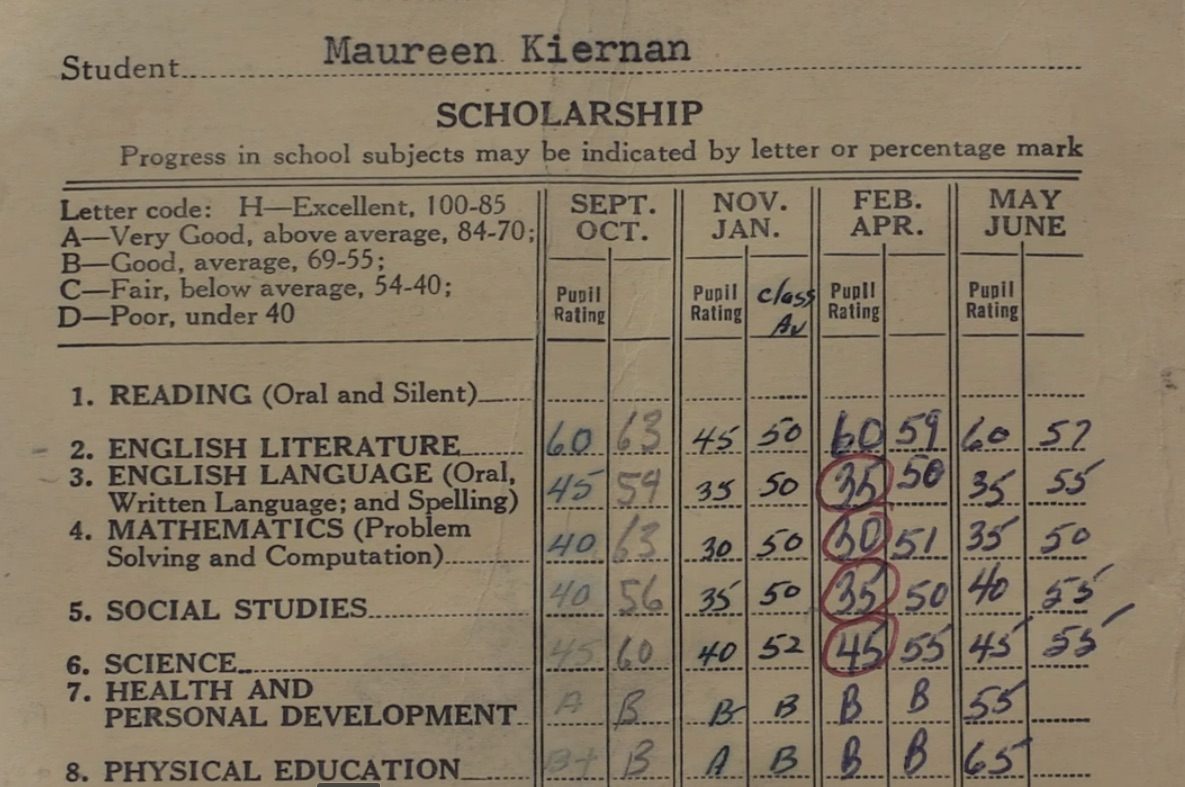 Student Maureen Kiernan
SCHOLARSHIP
Progress in school subjects may be indicated by letter or percentage mark
Letter code: H—Excellent, 100-85
A—Very Good, above average, 84-70;
B—Good, average, 69-55;
C—Fair, below average, 54-40;
D—Poor, under 40
SEPT. OCT. NOV. JAN. FEB. APR. MAY JUNE
Pupil Rating Pupil Rating class Av Pupil Rating Pupil Rating
1. READING (Oral and Silent)
2. ENGLISH LITERATURE 60 63 45 50 60 59 60 57
3. ENGLISH LANGUAGE (Oral,
Written Language; and Spelling) 45 59 35 50 35 50 35 55
4. MATHEMATICS (Problem
Solving and Computation) 40 63 30 50 30 51 35 50
5. SOCIAL STUDIES 40 56 35 50 35 50 40 55
6. SCIENCE 45 60 40 52 45 55 45 55
7. HEALTH AND
PERSONAL DEVELOPMENT A B B B B B 55
8. PHYSICAL EDUCATION B+ B A B B B 65